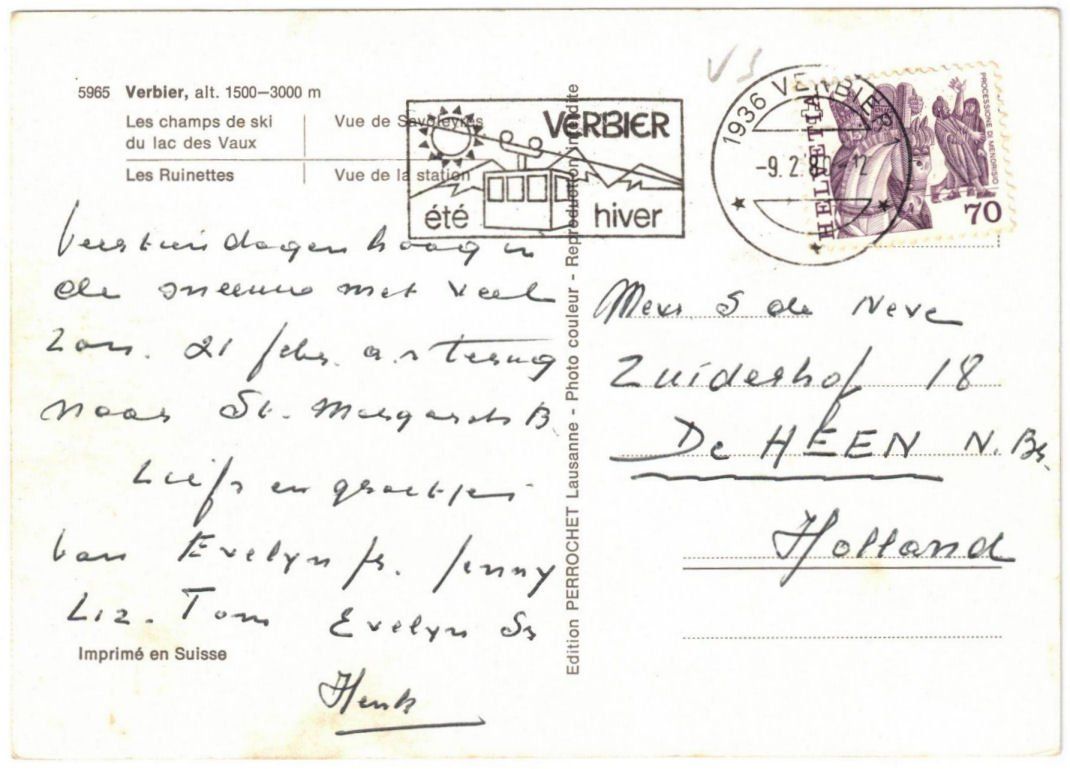 5965 Verbier, alt. 1500–3000 m
Les champs de ski
du lac des Vaux
Vue de Savoleyres
Les Ruinettes
Vue de la station
VERBIER
été hiver
1936 VERBIER
-9. 2. 8 12
HELVETIA
PROCESSIONE DI MENDRISIO
70
hoog in
de sneeuw met veel
zon. 21 febr. a.s terug
naar St. Margareth B.
Liefs en groetjes
van Evelyn jr. Jenny
Liz. Tom Evelyn Sr
Henk
Imprimé en Suisse
Edition PERROCHET Lausanne - Photo couleur - Reproduction interdite
Mevr S de Neve
Zuiderhof 18
De HEEN N.Br.
Holland